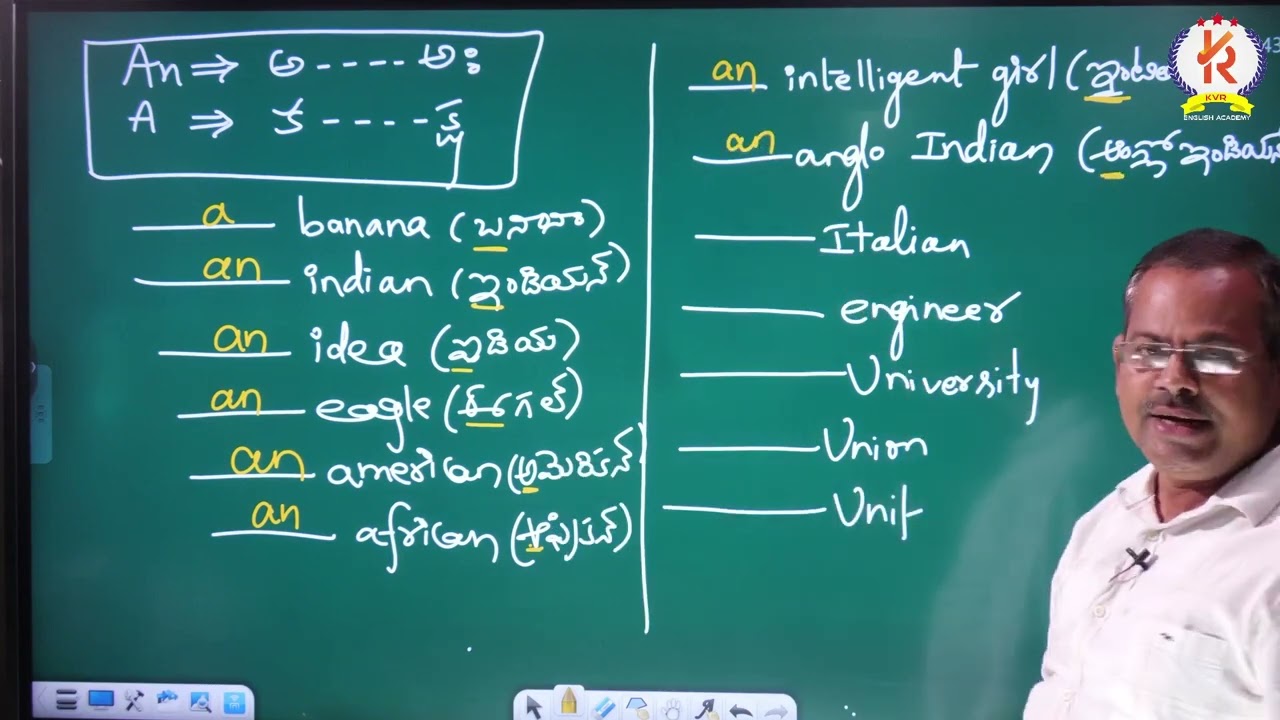 An ⇒ అ - - - - అః
A ⇒ క - - - - క్ష
a banana (బనానా)
an indian (ఇండియన్)
an idea (ఐడియ)
an eagle (ఈగల్)
an american (అమెరికన్)
an african (ఆఫ్రికన్)
an intelligent girl (
an anglo Indian (ఆంగ్లో ఇండియన్
_____ Italian
_____ engineer
_____ University
_____ Union
_____ Unit
KR
KVR
ENGLISH ACADEMY
43